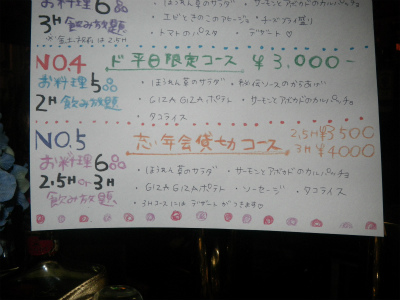 お料理6品
・ほうれん草のサラダ ・サーモンとアボカドのカルパッチョ
3H飲み放題
・エビときのこのアヒージョ ・チーズ盛り
※金土祝前は2.5H
・トマトのパスタ デザート♡
NO.4 ド平日限定コース ¥3,000-
お料理5品
・ほうれん草のサラダ ・秘伝ソースのからあげ
2H飲み放題
・GIZA GIZAポテト ・サーモンとアボカドのカルパッチョ
・タコライス
NO.5 忘年会貸切コース 2.5H¥3500
3H¥4000
お料理6品
・ほうれん草のサラダ ・サーモンとアボカドのカルパッチョ
2.5H or 3H
・GIZA GIZAポテト ・ソーセージ ・タコライス
飲み放題
・3Hコースには デザートがつきます♡